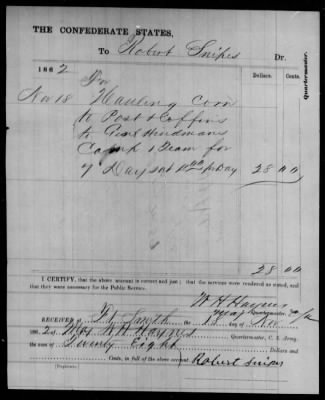 THE CONFEDERATE STATES,
To Robert Snipes Dr.
1862 Dollars. Cents.
For
Nov 18 Hauling Corn
to Post & Coffins
to Genl Hindmans
Camp 1 Team for
7 Days at 4.00 pr Day 28 00
28 00
I CERTIFY, that the above account is correct and just; that the services were rendered as stated, and that they were necessary for the Public Service.
W H Haynes
Maj Quartermaster,
RECEIVED at Ft Smith the 18 day of Nov
1862, of Maj W H Haynes Quartermaster, C. S. Army,
the sum of Twenty Eight Dollars and
Cents, in full of the above account.
Robert Snipes
[Duplicate.]
Quartermaster.